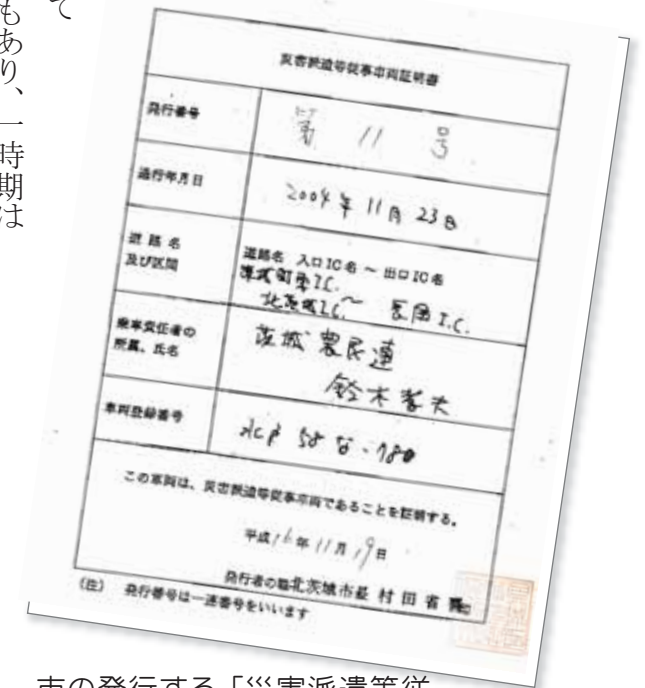 て
もあり、一時期は
災害派遣等従事車両証明書
発行番号
第 11 号
通行年月日
2004年11月23日
道路名
及び区間
道路名 入口IC名 ~ 出口IC名
北茨城I.C. ~ 長岡I.C.
乗車責任者の
所属、氏名
茨城農民連
鈴木孝夫
車両登録番号
水戸 58 な・180
この車両は、災害派遣等従事車両であることを証明する。
平成16年11月19日
発行者の職 北茨城市長 村田省
(注) 発行番号は一連番号をいいます
市の発行する「災害派遣等従